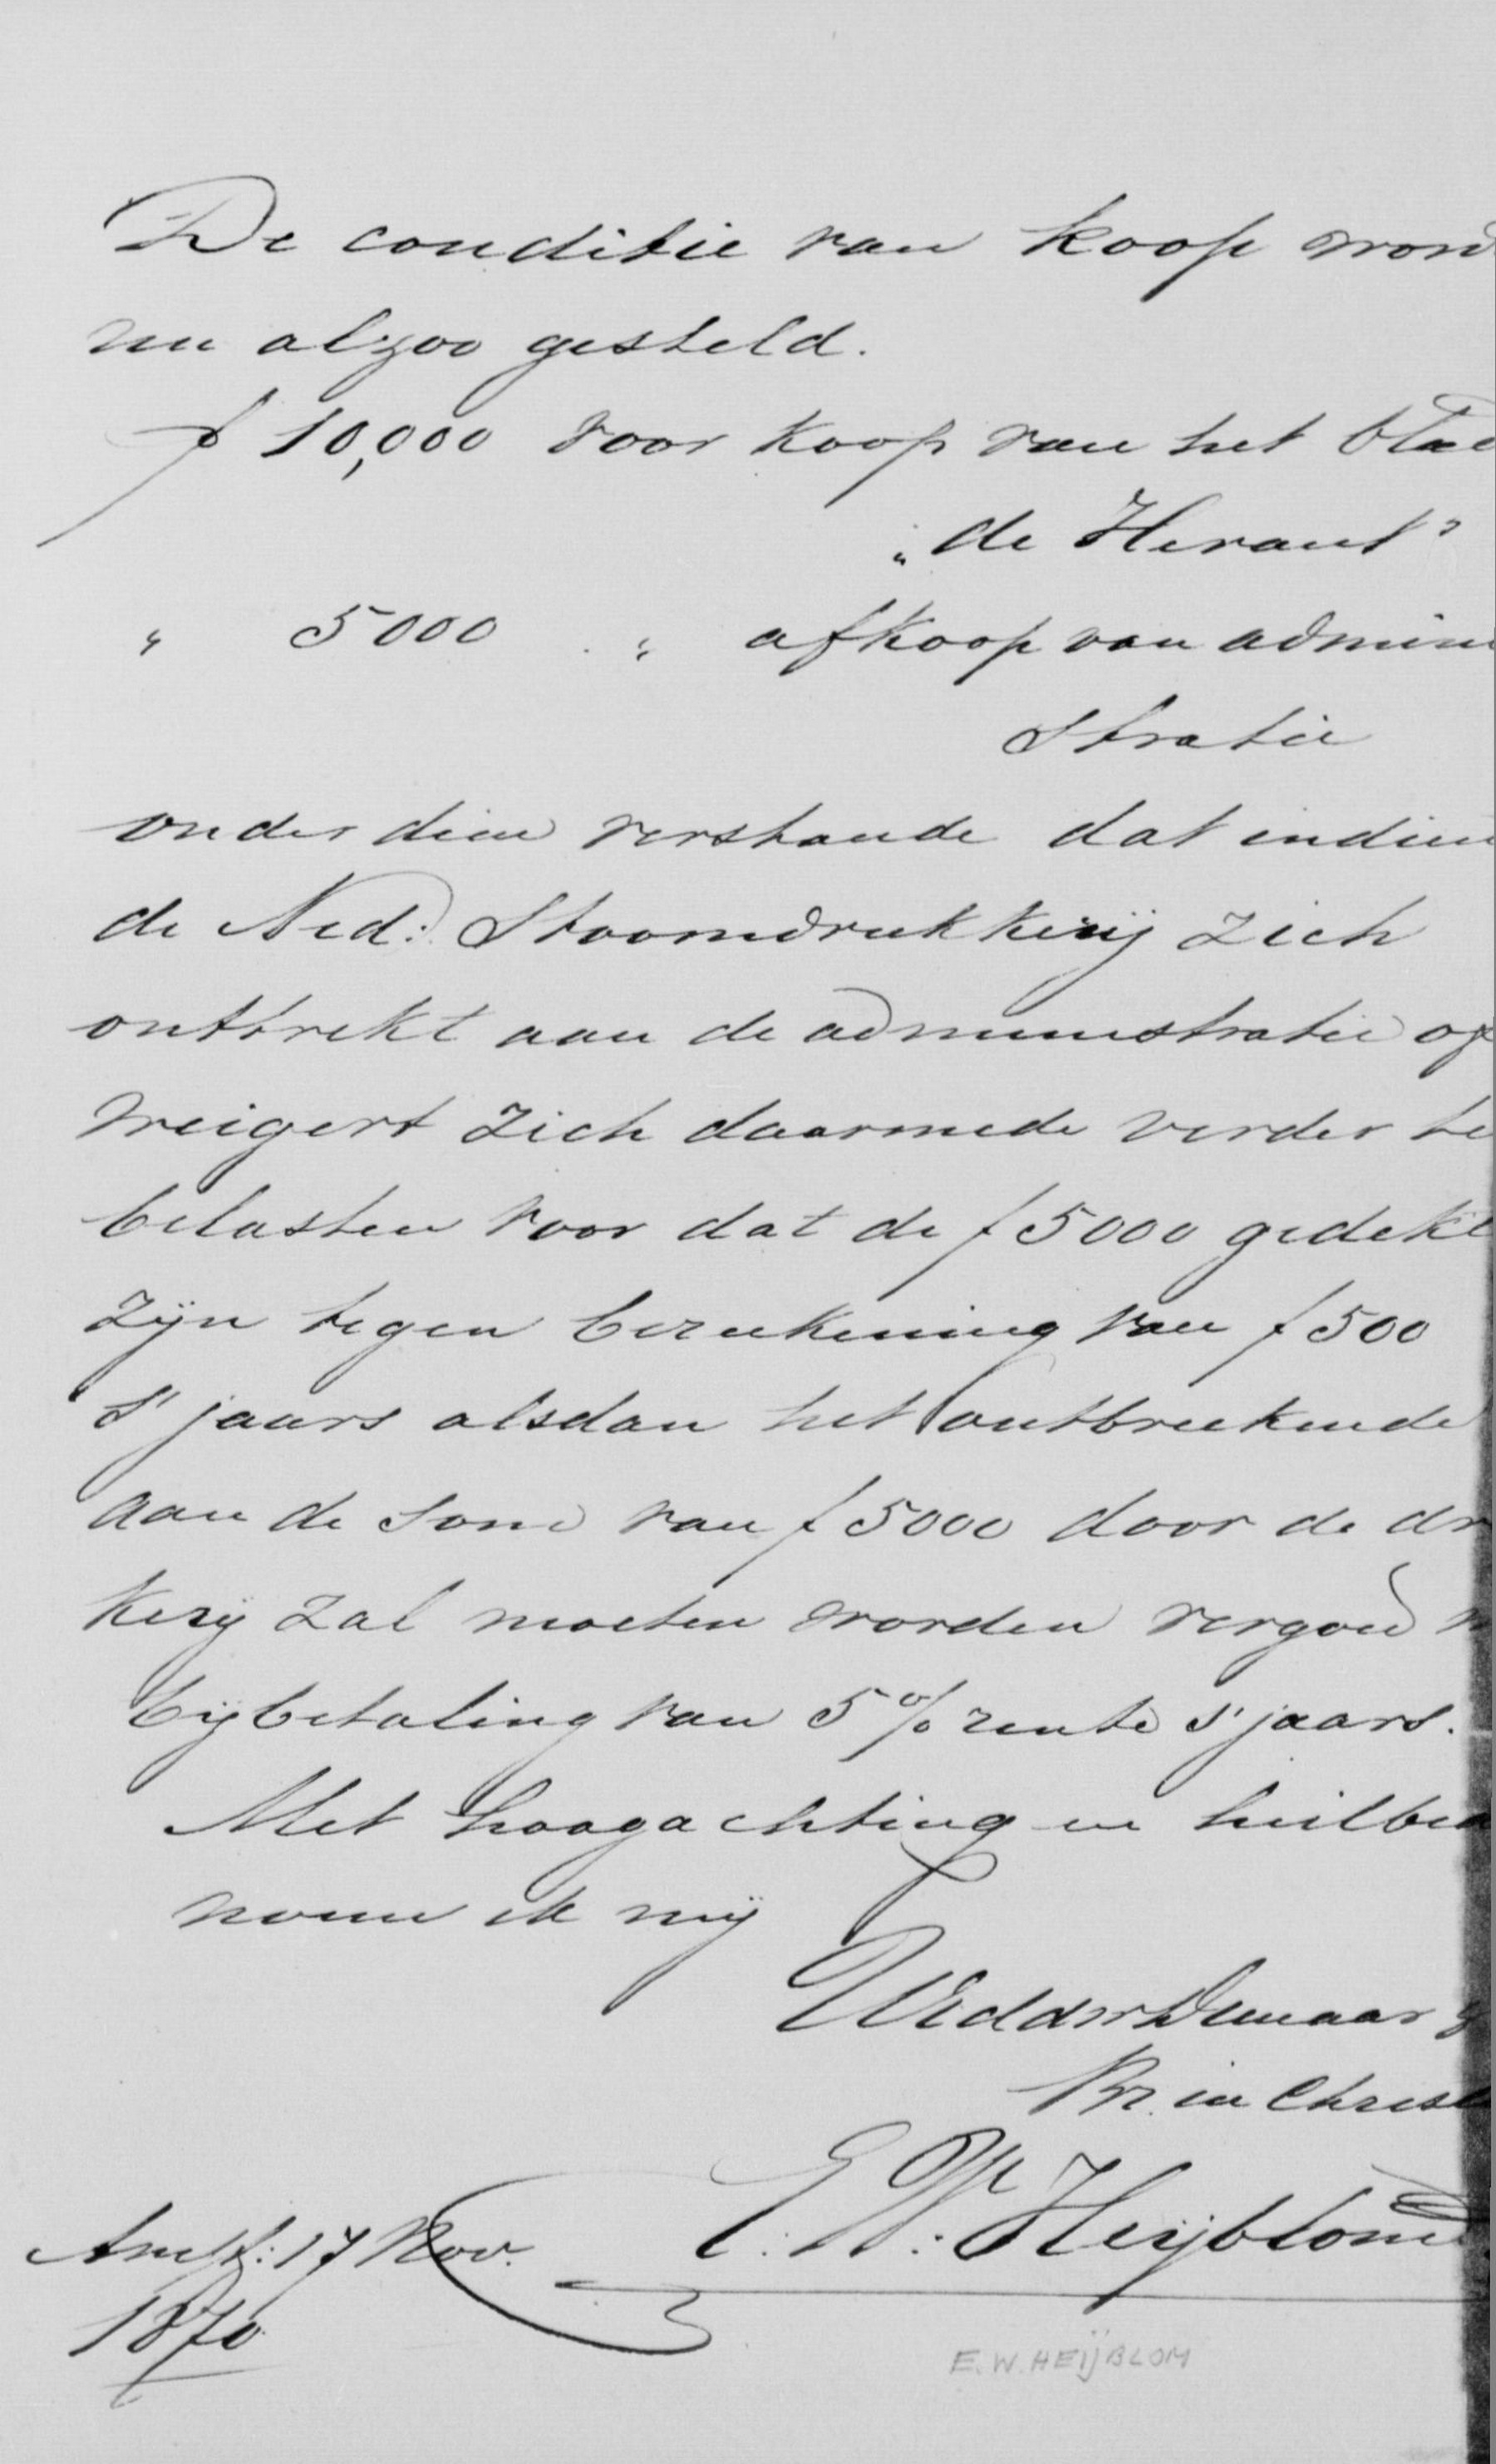 De conditie van koop word
nu alzoo gesteld.
f 10,000 voor koop van het blad
„de Heraut"
" 5000 " afkoop van admini
stratie
onder dien verstande dat indien
de Ned: Stoomdrukkerij zich
onttrekt aan de administratie of
weigert zich daarmede verder te
belasten voor dat de f 5000 gedekt
zijn tegen berekening van f 500
'S jaars alsdan het ontbreekende
aan de som van f 5000 door de dr
kerij zal moeten worden vergoed
bijbetaling van 5% rente 'S jaars.
Met hoogachting en heilbe
noem ik mij
UEd dw Dienaar
Br. in Christ
E. W. Heijblom
Amst: 17 Nov.
1870
E. W. HEIJBLOM